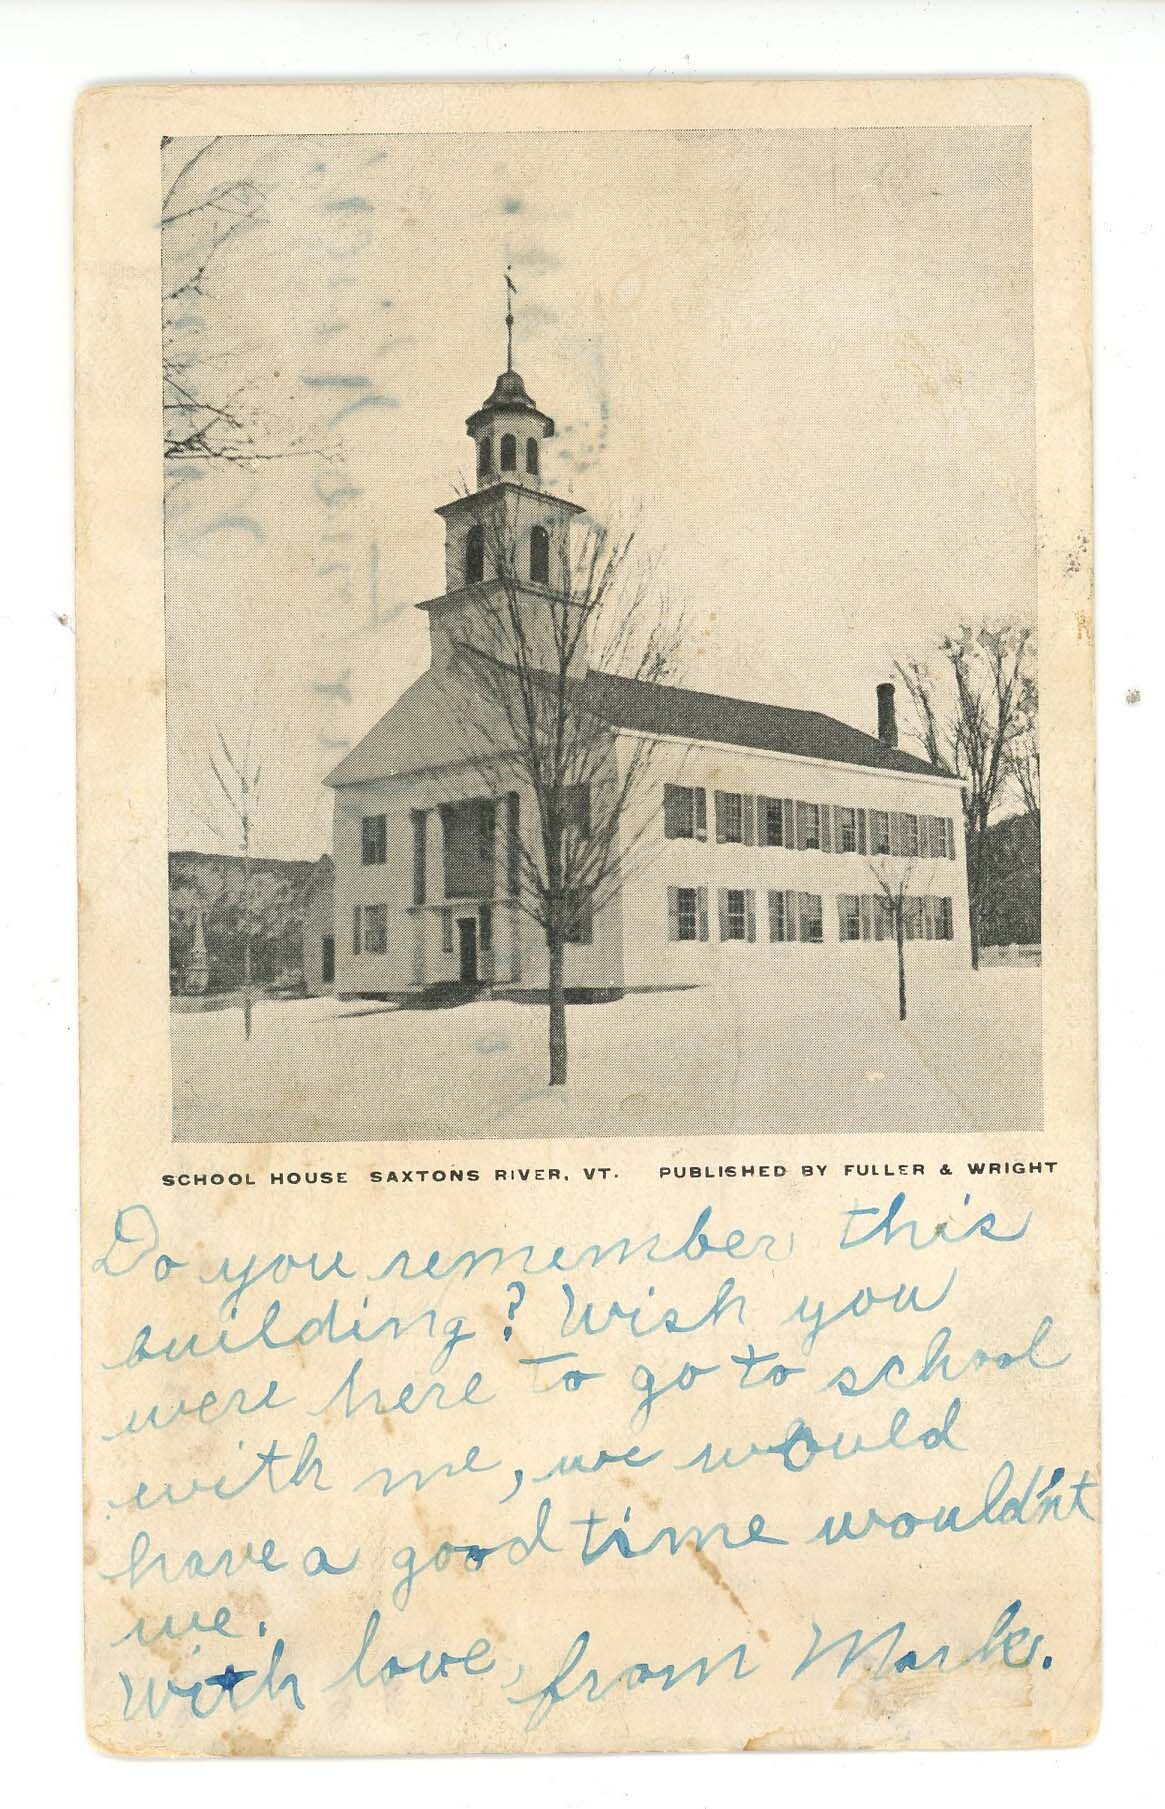 SCHOOL HOUSE SAXTONS RIVER, VT. PUBLISHED BY FULLER & WRIGHT
Do you remember this
building? Wish you
were here to go to school
with me, we would
have a good time would'nt
we.
With love, from Mark.